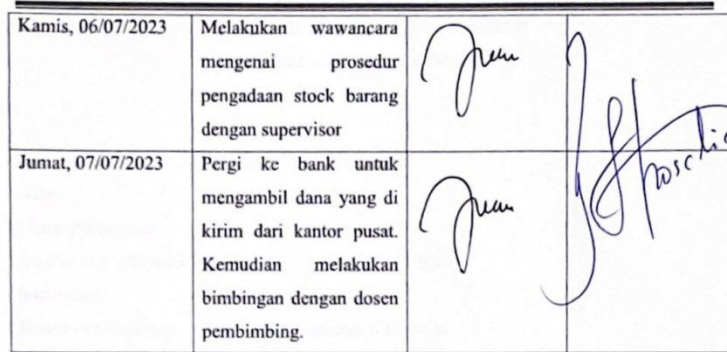 Kamis, 06/07/2023
Melakukan wawancara
mengenai prosedur
pengadaan stock barang
dengan supervisor
Jumat, 07/07/2023
Pergi ke bank untuk
mengambil dana yang di
kirim dari kantor pusat.
Kemudian melakukan
bimbingan dengan dosen
pembimbing.